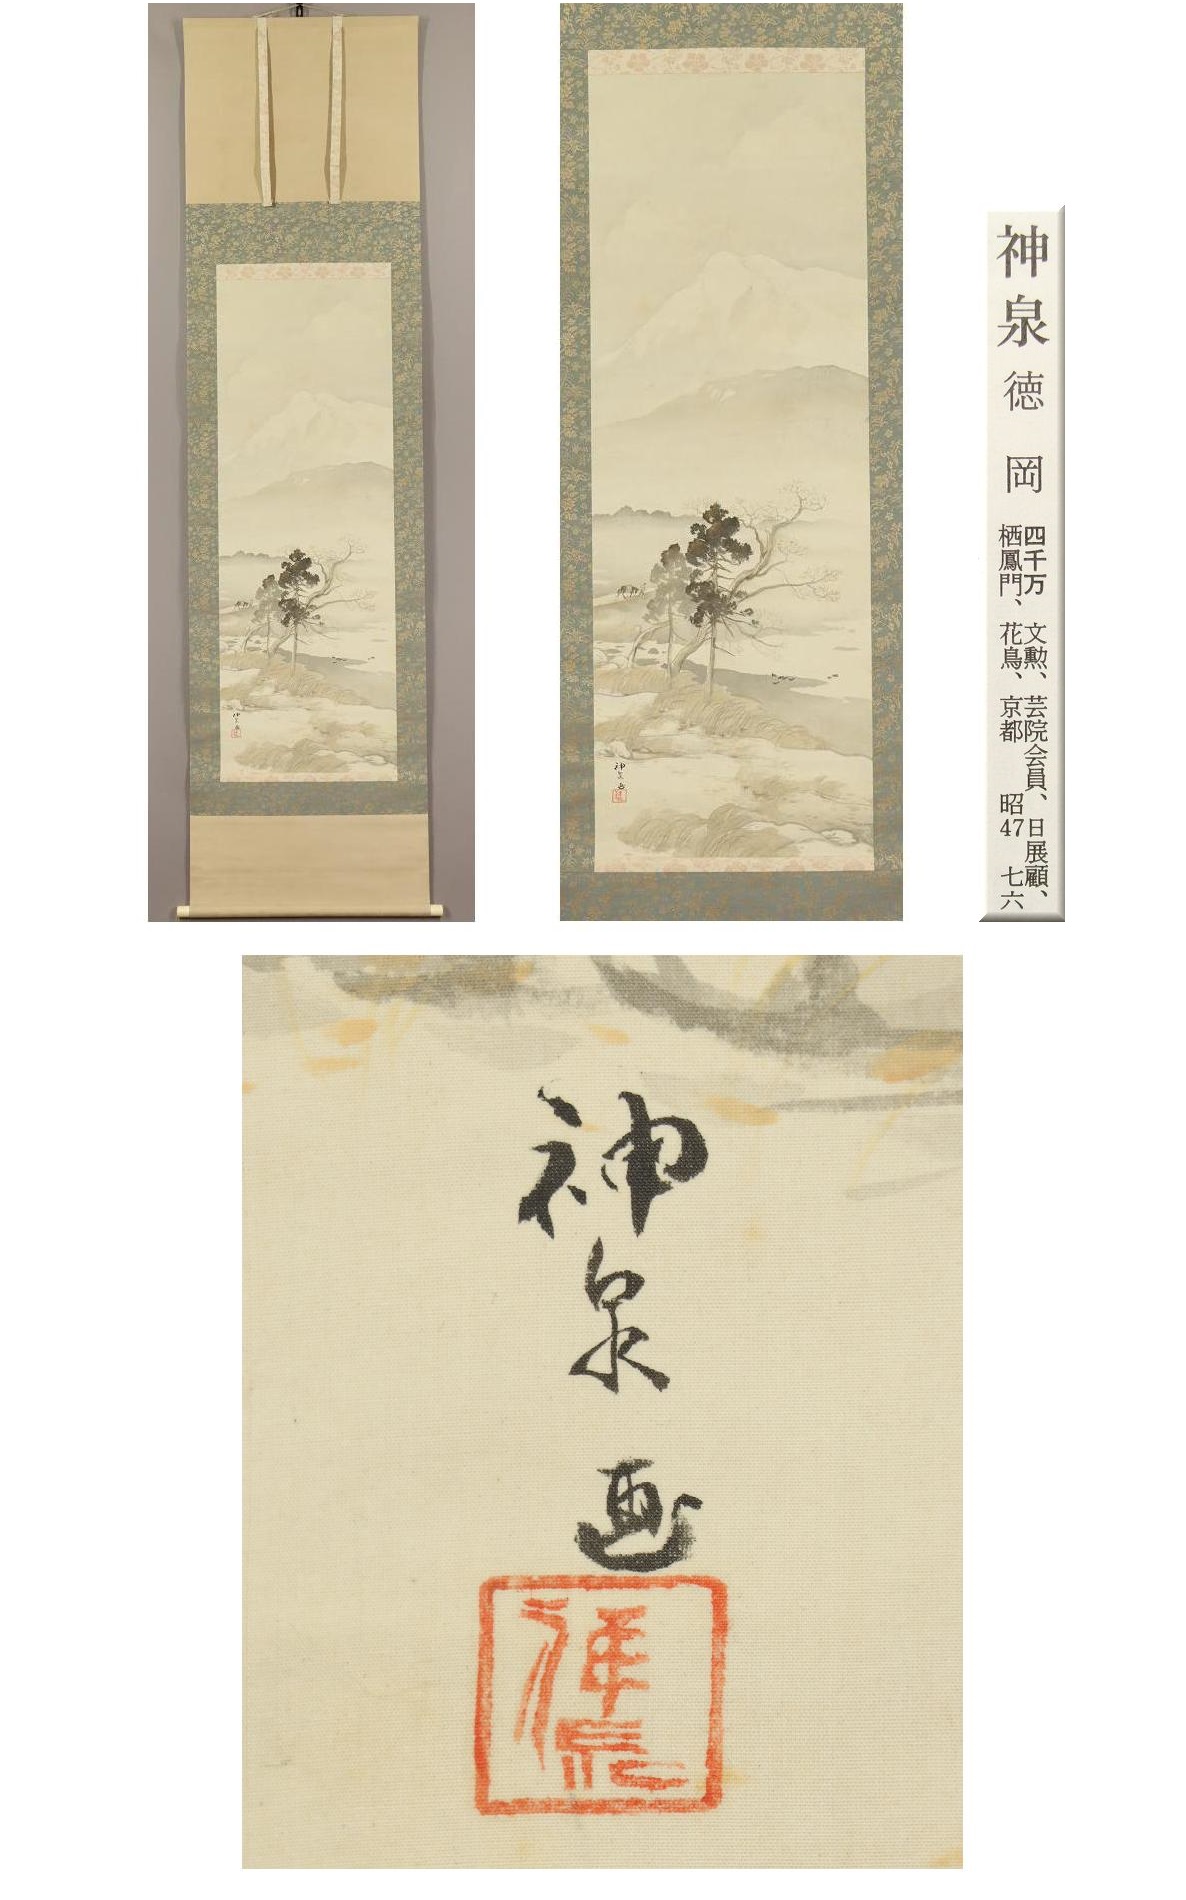 神泉画
神泉
神泉 徳岡
四千万 文勲、芸院会員、日展顧、
栖鳳門、花鳥、京都 昭47 七六
神泉画
神泉